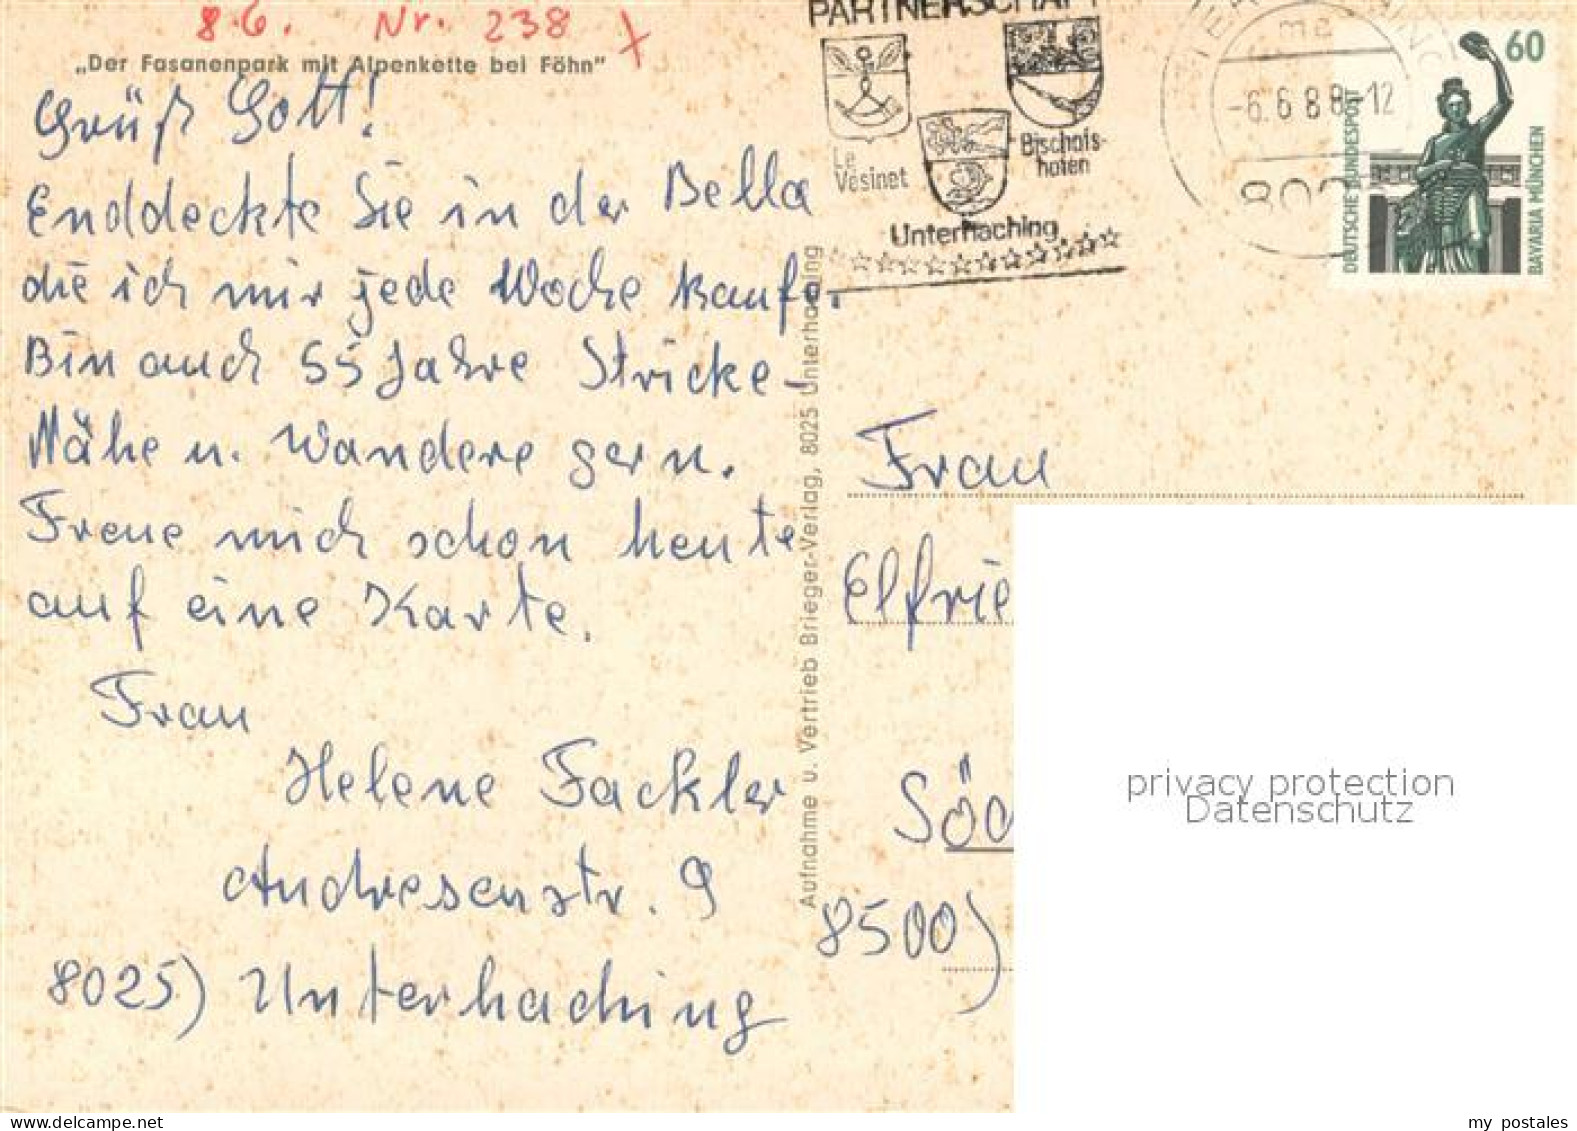 8 6. Nr. 238
„Der Fasanenpark mit Alpenkette bei Föhn"
Grüß Gott!
Enddeckte Sie in der Bella
die ich mir jede Woche kaufe.
Bin auch 55 Jahre Stricke-
Nähe u. Wandere gern.
Freue mich schon heute
auf eine Karte.
Frau
Helene Fackler
Andresenstr. 9
8025) Unterhaching
Aufnahme u. Vertrieb Brieger-Verlag, 8025 Unterhaching
PARTNERSCHAFT
Le
Vésinet
Bischofs-
hofen
Unterhaching
-6.6 88-12
60
DEUTSCHE BUNDESPOST
BAVARIA MÜNCHEN
Frau
Elfrie
8500)
privacy protection
Datenschutz
my postales